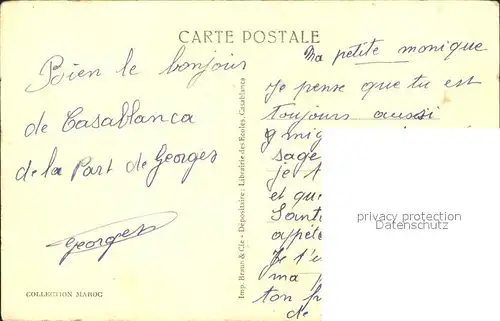 CARTE POSTALE
Bien le bonjour
de Casablanca
de la Part de Georges
Georges
COLLECTION MAROC
Imp. Braun & Cie - Dépositaire: Librairie des Ecoles, Casablanca
Ma petite monique
Je pense que tu est
toujours aussi
sage
je t
et que
Santé
appéte
Je t'e
ma
ton
de
privacy protection
Datenschutz